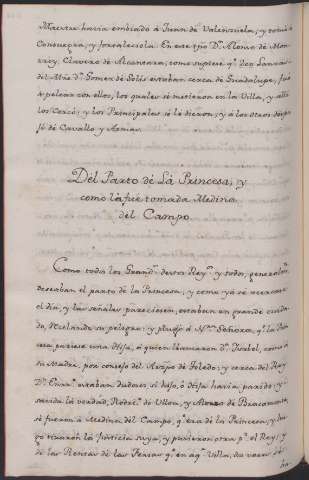 Maestre havia embiado á Juan de Valenzuela, y tomó á
Consuegra, y fortaleciola. En este tpo. Dn. Alonso de Mon-
rroy, Clavero de Alcantara, como supiese qe. Don
Dn. Gomez de Solis estaban cerca de Guadalupe, fué
á pelear con ellos, los quales se metieron en la Villa, y allí
los Cercó; y los Principales se le dieron, y á los otros despo-
jó de Cavallo y Armas.
Del Parto de La Princesa; y
como la fue tomada Medina
del Campo
Como todos los Grandes. deste Rey.no y todos, generalmte.
deseaban el parto de la Princesa, y como yá se acercase
el dia, y las señales pareciesen, estaban en grande cuida-
do, rezelando su peligro: y plugó á Nra. Señora, qe. la Prin-
cesa pariese una Hija, á quien llamaron Da. Isabel, como á
su Madre, por consejo del Arzpo. de Toledo; y cerca del Rey
Dn. Enrre. estaban dudosos si hijo, ó hija havia parido; y
savida la verdad, Rodrigo. de Ulloa, y Alonso de Bracamonte,
se fueron á Medina del Campo, qe. era de la Princesa; y lue-
go tiraron la Justicia suya, y pusieron otra pr. el Rey; y
de las Rentas de las Ferias qe. en aqa. Villa,